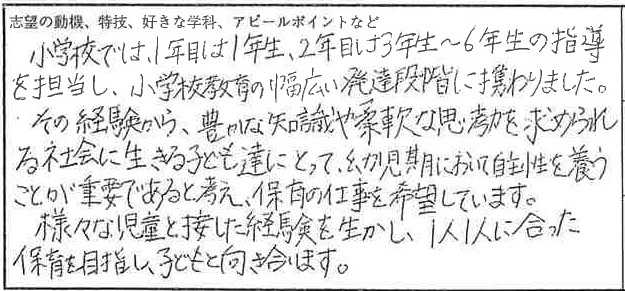 志望の動機、特技、好きな学科、アピールポイントなど
小学校では、1年目は1年生、2年目は3年生〜6年生の指導
を担当し、小学校教育の幅広い発達段階に携わりました。
その経験から、豊かな知識や柔軟な思考力を求められ
る社会に生きる子ども達にとって、幼児期において自主性を養う
ことが重要であると考え、保育の仕事を希望しています。
様々な児童と接した経験を生かし、1人1人に合った
保育を目指し、子どもと向き合います。